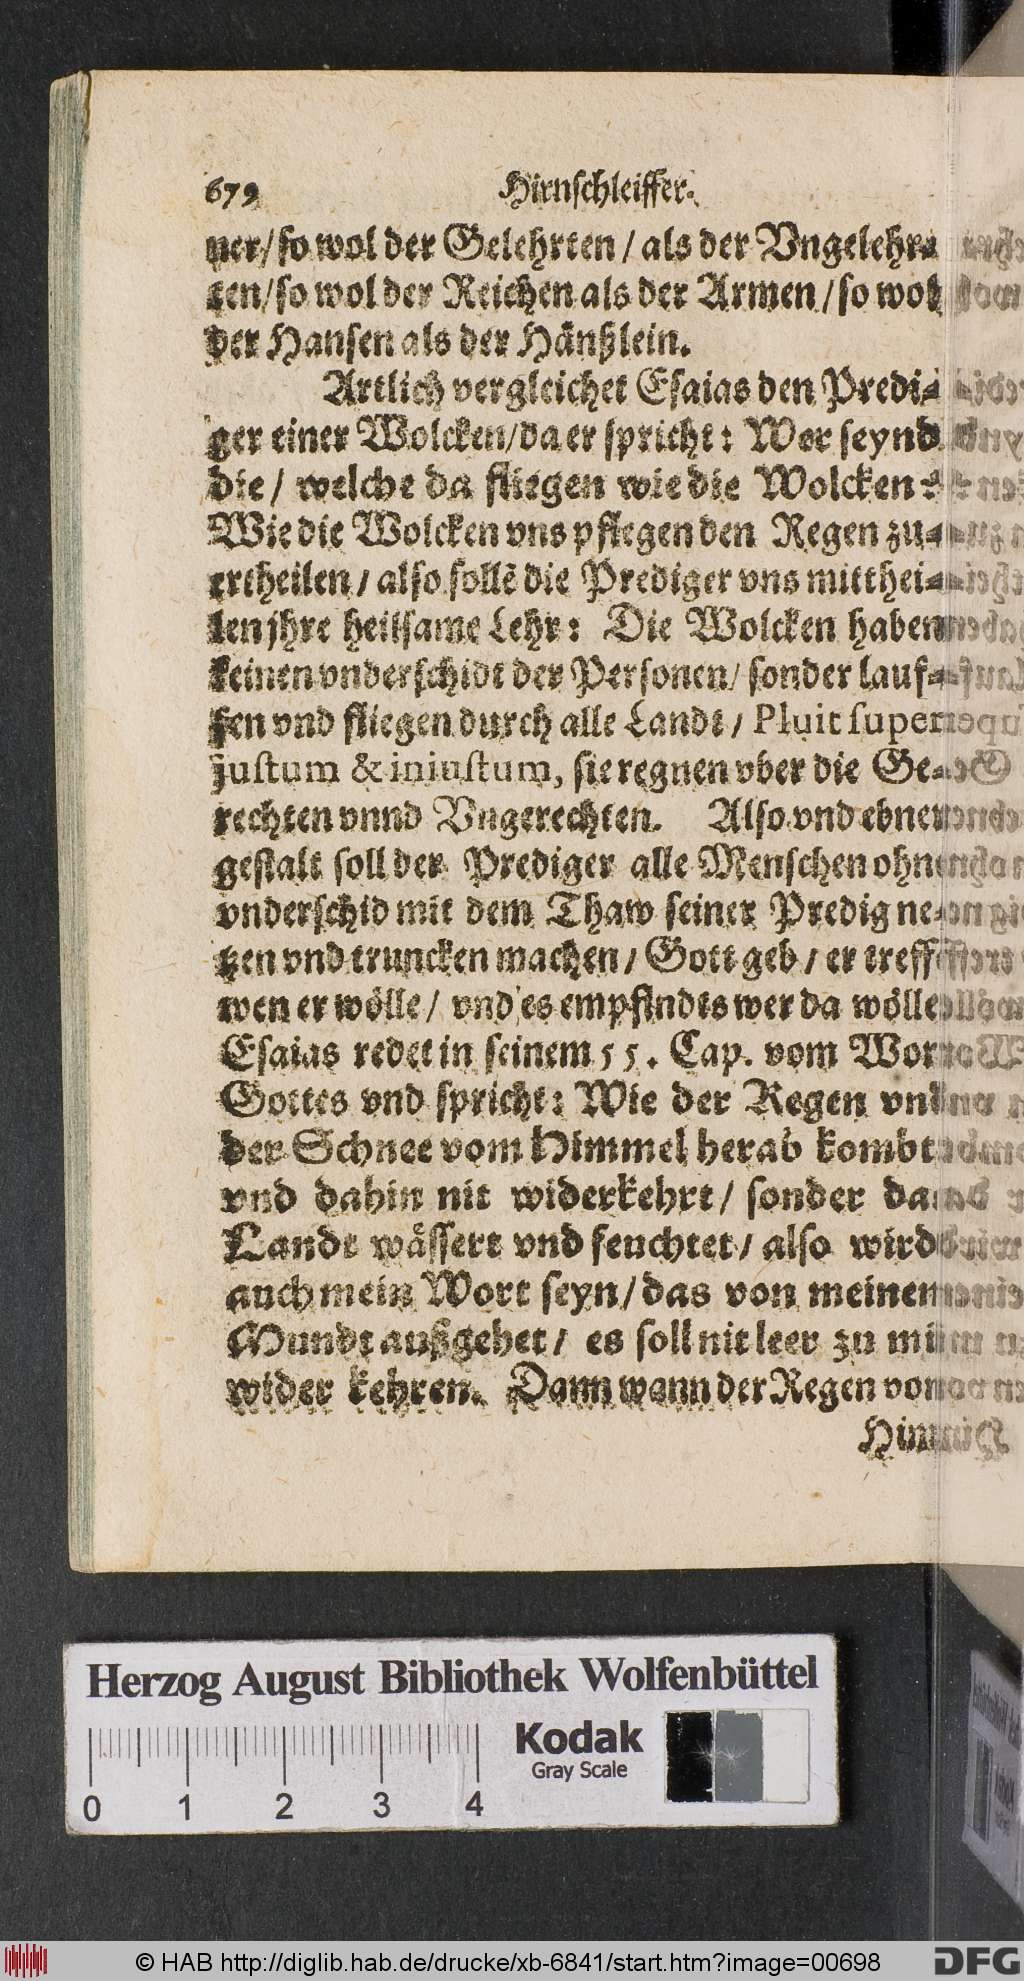 679 Hirnschleiffer.
ner/ so wol der Gelehrten / als der Vngelehr-
ten/ so wol der Reichen als der Armen / so wol
der Hansen als der Hänßlein.
Artlich vergleichet Esaias den Predi-
ger einer Wolcken/ da er spricht: Wer seynd
die/ welche da fliegen wie die Wolcken?
Wie die Wolcken vns pflegen den Regen zu-
ertheilen / also sollē die Prediger vns mitthei-
len jhre heilsame Lehr: Die Wolcken haben
keinen vnderschidt der Personen/ sonder lauf-
fen vnd fliegen durch alle Landt / Pluit super
justum & iniustum, sie regnen vber die Ge-
rechten vnnd Vngerechten. Also vnd ebner
gestalt soll der Prediger alle Menschen ohn
vnderschid mit dem Thaw seiner Predig ne-
tzen vnd truncken machen / Gott geb / er treff
wen er wölle / vnd es empfindts wer da wölle
Esaias redet in seinem 55. Cap. vom Wort
Gottes vnd spricht: Wie der Regen vnd
der Schnee vom Himmel herab kombt
vnd dahin nit widerkehrt / sonder das
Landt wässert vnd feuchtet / also wird
auch mein Wort seyn / das von meinem
Mundt außgehet / es soll nit leer zu mir
wider kehren. Dann wann der Regen von
Himmel
Herzog August Bibliothek Wolfenbüttel
Kodak
Gray Scale
0 1 2 3 4
© HAB http://diglib.hab.de/drucke/xb-6841/start.htm?image=00698 DFG